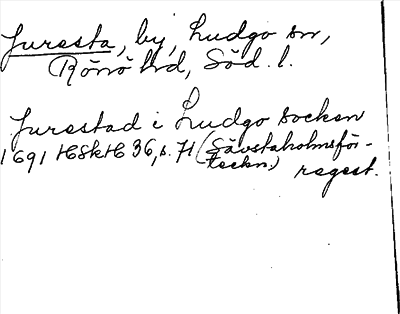 Juresta, by, Ludgo sn,
Rönö hd, Söd. l.
Jurestad i Ludgo socken
1691 HSkH 36, s. 71 (Sävstaholmsför-
teckn.) regest.